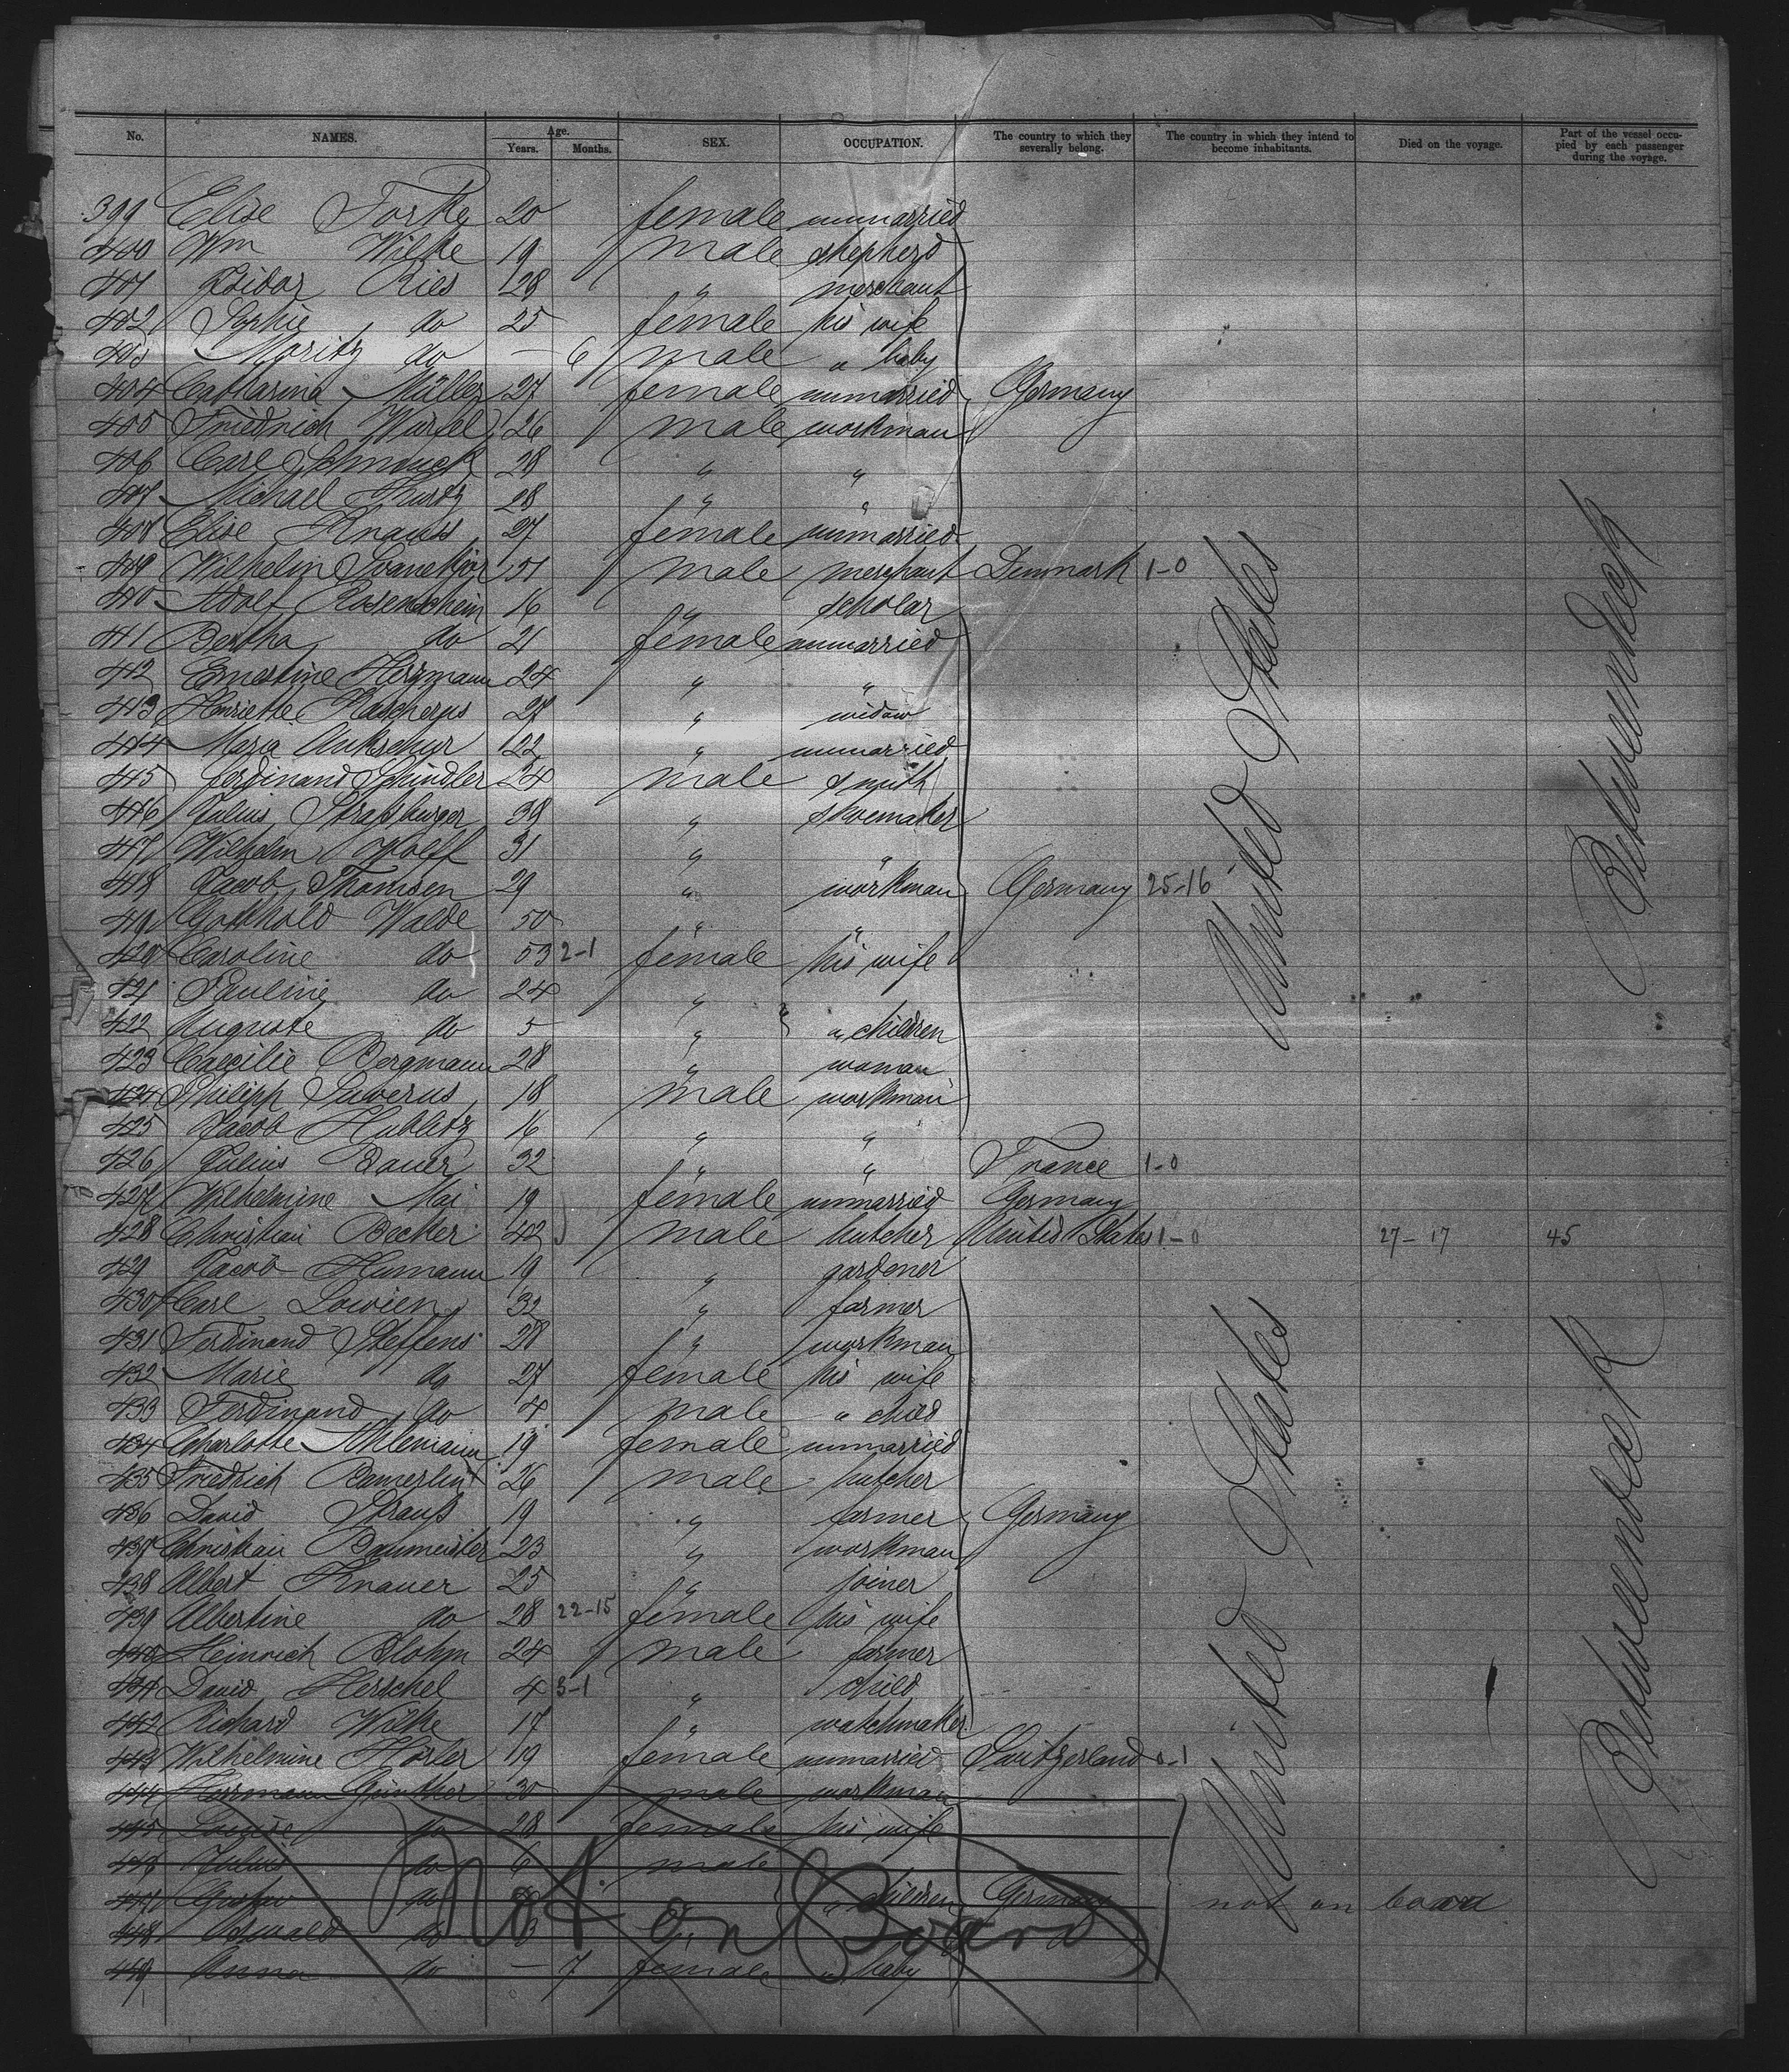 No. NAMES. Age. Years. Months. SEX. OCCUPATION. The country to which they severally belong. The country in which they intend to become inhabitants. Died on the voyage. Part of the vessel occupied by each passenger during the voyage.
399 Elise 20 female unmarried
400 Wm Wilke 19 male shepherd
401 Isidor Ries 28 " merchant
402 Sophie do 25 female his wife
403 Moritz do — 6 male " baby
404 Catharina Müller 27 female unmarried Germany
405 Friedrich Würfel 26 male workman
406 Carl Schmuck 28 " "
407 Michael Kurtz 28 " "
408 Elise Knauss 27 female unmarried
409 Wilhelm 51 male merchant Denmark 1-0
410 Adolf Rosenschein 16 " scholar
411 Bertha do 21 female unmarried
412 Ernestine Hermann 24 " "
413 Henriette 27 " widow
414 Maria 22 " unmarried
415 Ferdinand Schindler 24 male smith
416 Julius Straßburger 38 " shoemaker
417 Wilhelm Wolff 31 " "
418 Jacob Thomsen 29 " workman Germany 25-16
419 Gotthold Walde 50 " "
420 Caroline do 53 2-1 female his wife
421 Pauline do 24 "
422 Auguste do 5 " " children
423 Caecilie Bergmann 28 " woman
424 Philipp 18 male workman
425 Jacob Hublitz 16 " "
426 Julius Bauer 32 " " France 1-0
427 Wilhelmine Mai 19 female unmarried Germany
428 Christian Becker 42 male butcher United States 1-0 27-17 45
429 Jacob Humann 19 " gardener
430 Carl Lowien 32 " farmer
431 Ferdinand Steffens 28 " workman
432 Marie do 27 female his wife
433 Ferdinand do 4 male " child
434 Charlotte Ahlemann 19 female unmarried
435 Friedrich 26 male butcher
436 David Strauß 19 " farmer Germany
437 Christian Baumeister 23 " workman
438 Albert Knauer 25 " joiner
439 Albertine do 28 22-15 female his wife
440 Heinrich Blohm 24 male farmer
441 David Herschel 4 3-1 " child
442 Richard Wilke 17 " watchmaker
443 Wilhelmine Hösler 19 female unmarried Switzerland 0-1
444 Hermann Günther 30 male workman
445 Louise do 28 female his wife
446 Julius do 6 male
447 Gustav do " children Germany not on board
448 Oswald do 3 "
449 Anna do — 7 female " baby
Not on Board
United States
Betweendeck
United States
Betweendeck